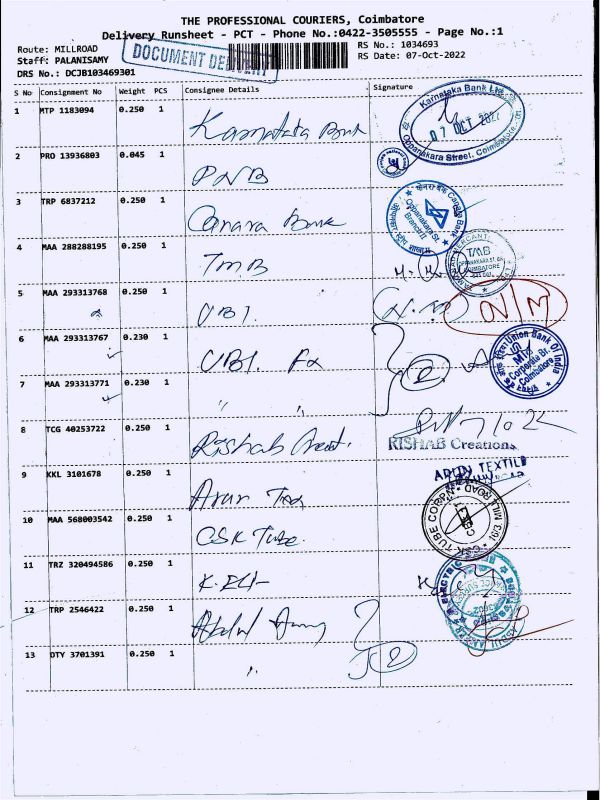 THE PROFESSIONAL COURIERS, Coimbatore
Delivery Runsheet - PCT - Phone No.:0422-3505555 - Page No.:1
Route: MILLROAD
RS No.: 1034693
Staff: PALANISAMY
RS Date: 07-Oct-2022
DRS No.: DCJB103469301
DOCUMENT
S No Consignment No Weight PCS Consignee Details Signature
1 MTP 1183094 0.250 1 Karnataka Bank
Karnataka Bank Ltd.
07 OCT 202
Oppanakara Street, Coimbatore
2 PRO 13936803 0.045 1 PNB
3 TRP 6837212 0.250 1 Canara Bank
Canara Bank
Oppanakara St.
Branch II
4 MAA 288288195 0.250 1 TMB
TMB
OPPANAKARA ST.
COIMBATORE
5 MAA 293313768 0.250 1 UBI.
N/M
6 MAA 293313767 0.230 1 UBI.
2
Union Bank Of India
Mid Corporate Br.
Coimbatore
7 MAA 293313771 0.230 1 " "
8 TCG 40253722 0.250 1 Rishab Creat.
RISHAB Creations
9 KKL 3101678 0.250 1 Arun Tex
ARUN TEXTILE
10 MAA 568003542 0.250 1 CSK Tube
CSK TUBE CORPN
MILL ROAD
11 TRZ 320494586 0.250 1
ELECTRIC
12 TRP 2546422 0.250 1 Abdul
13 DTY 3701391 0.250 1 "
2